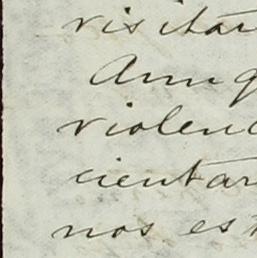 visitar
Aunq
violenc
cientar
nos est